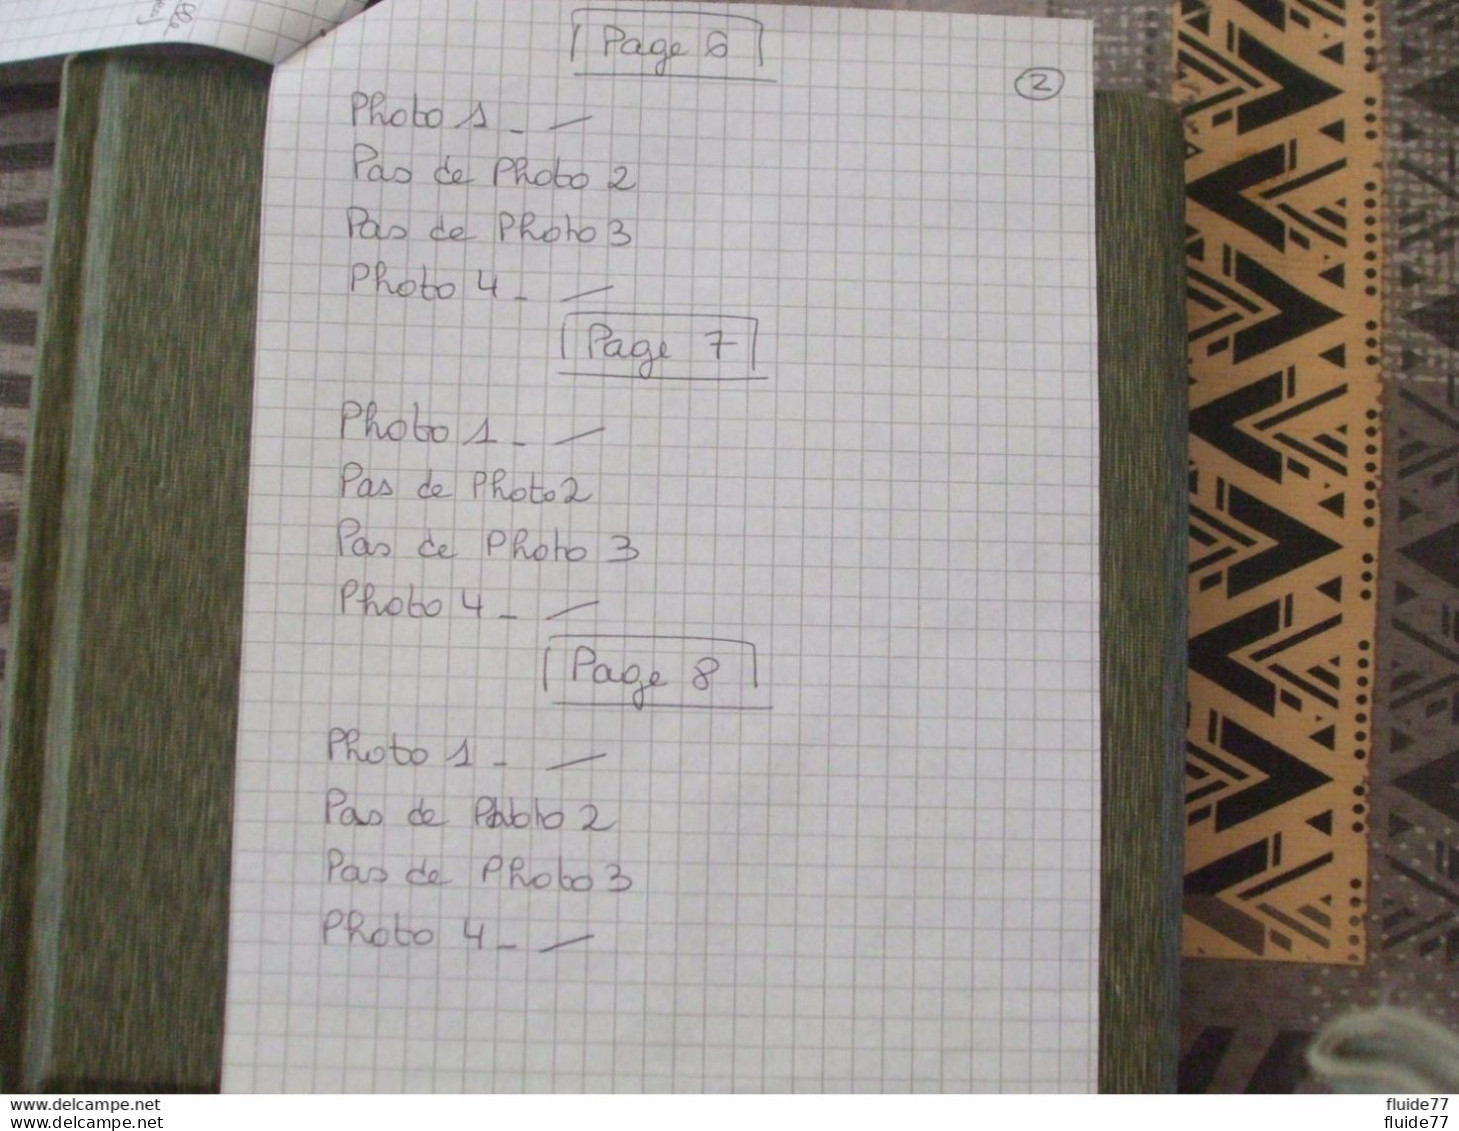 Page 6
2
Photo 1 - —
Pas de Photo 2
Pas de Photo 3
Photo 4 - —
Page 7
Photo 1 - —
Pas de Photo 2
Pas de Photo 3
Photo 4 - —
Page 8
Photo 1 - —
Pas de Photo 2
Pas de Photo 3
Photo 4 - —
www.delcampe.net fluide77
www.delcampe.net fluide77